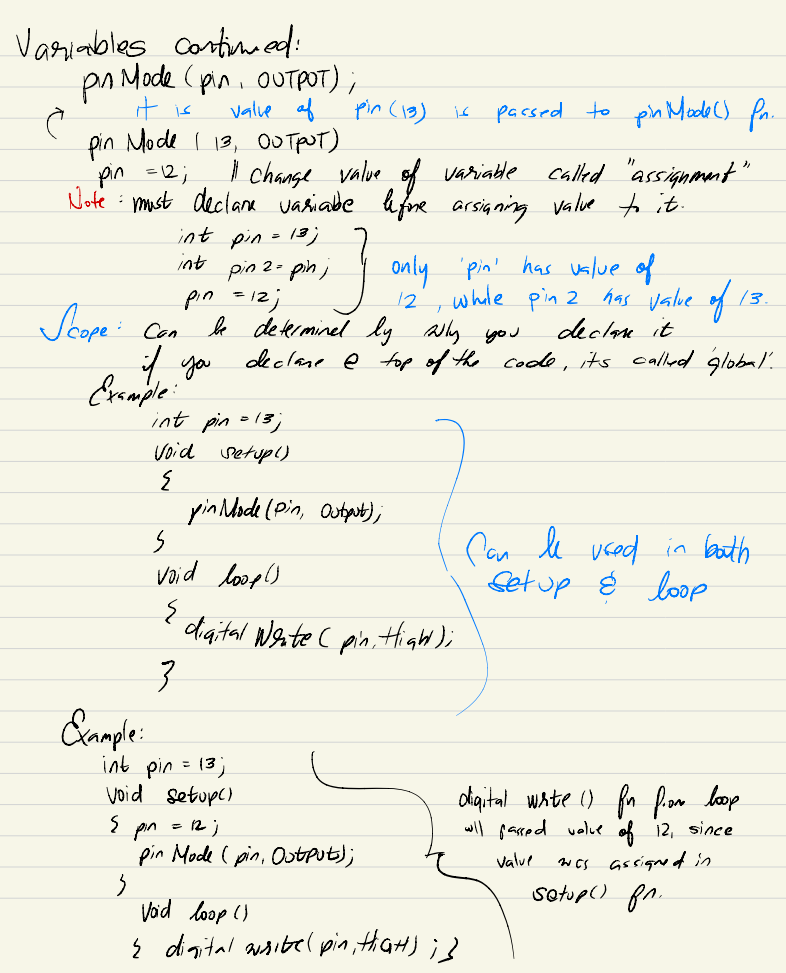 Variables continued:
pinMode (pin, OUTPUT);
it is value of pin (13) is passed to pinMode() fn.
pinMode ( 13, OUTPUT)
pin =12; // change value of variable called "assignment"
Note: must declare variable before assigning value to it.
int pin = 13;
int pin 2 = pin;
pin = 12;
only 'pin' has value of
12, while pin 2 has value of 13.
Scope: Can be determined by why you declare it
if you declare @ top of the code, its called 'global'.
Example:
int pin = 13;
void setup()
{
pinMode(pin, Output);
}
void loop()
{
digital Write ( pin, High);
}
Can be used in both
setup & loop
Example:
int pin = 13;
void setup()
{ pin = 12;
pin Mode ( pin, Outputs);
}
void loop ()
{ digital write( pin, HIGH) ; }
digital write () fn from loop
will passed value of 12, since
value was assigned in
setup() fn.